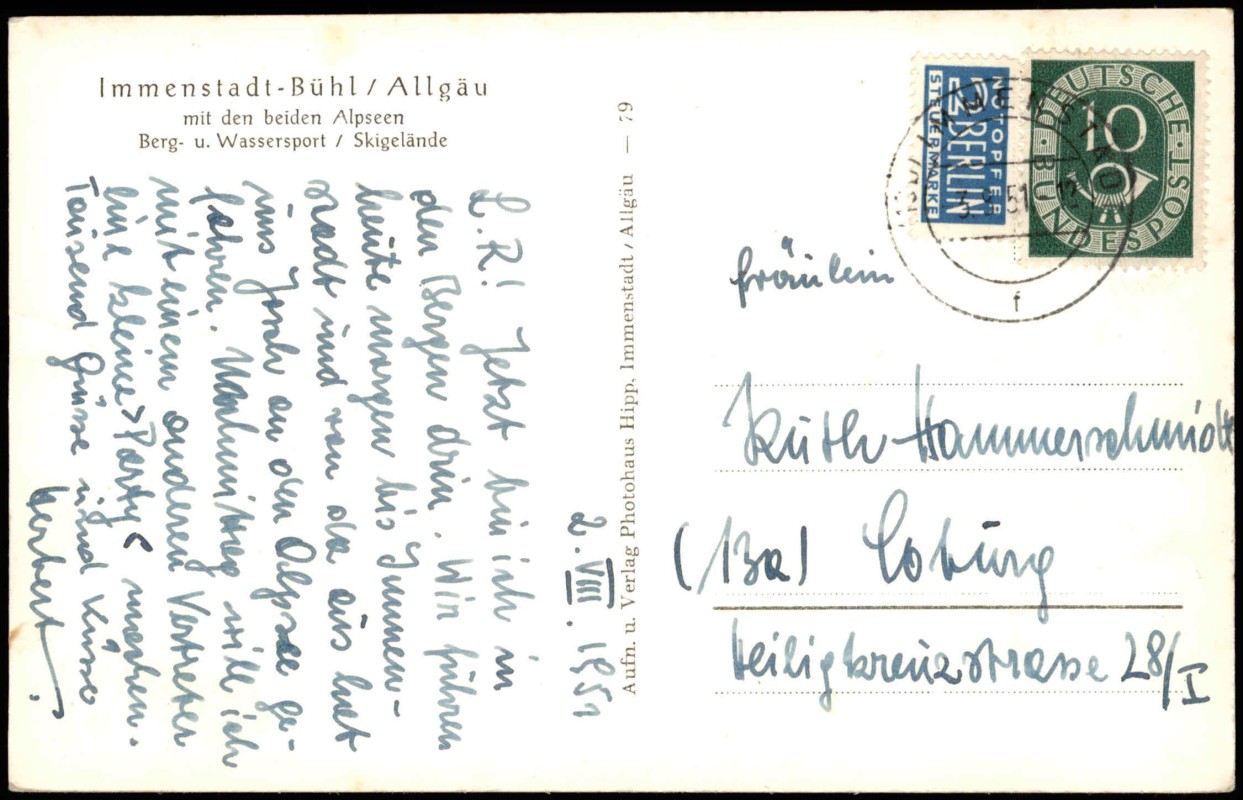 Immenstadt-Bühl / Allgäu
mit den beiden Alpseen
Berg- u. Wassersport / Skigelände
2. VIII. 1951
L. R.! Jetzt bin ich in
den Bergen drin. Wir fuhren
heute morgen bis Immen-
stadt und von da aus
ins Joch an den Alpsee ge-
fahren. Nachmittag will ich
mit einem anderen Vertreter
eine kleine >Party< machen.
Tausend Grüsse und Küsse
Herbert.
Aufn. u. Verlag Photohaus Hipp, Immenstadt / Allgäu — 79
NOTOPFER
2 BERLIN
STEUERMARKE
DEUTSCHE BUNDESPOST
10
IMMENSTADT
3.8.51
f
Fräulein
Ruth Hammerschmidt
(13a) Coburg
Heiligkreuzstrasse 28/I